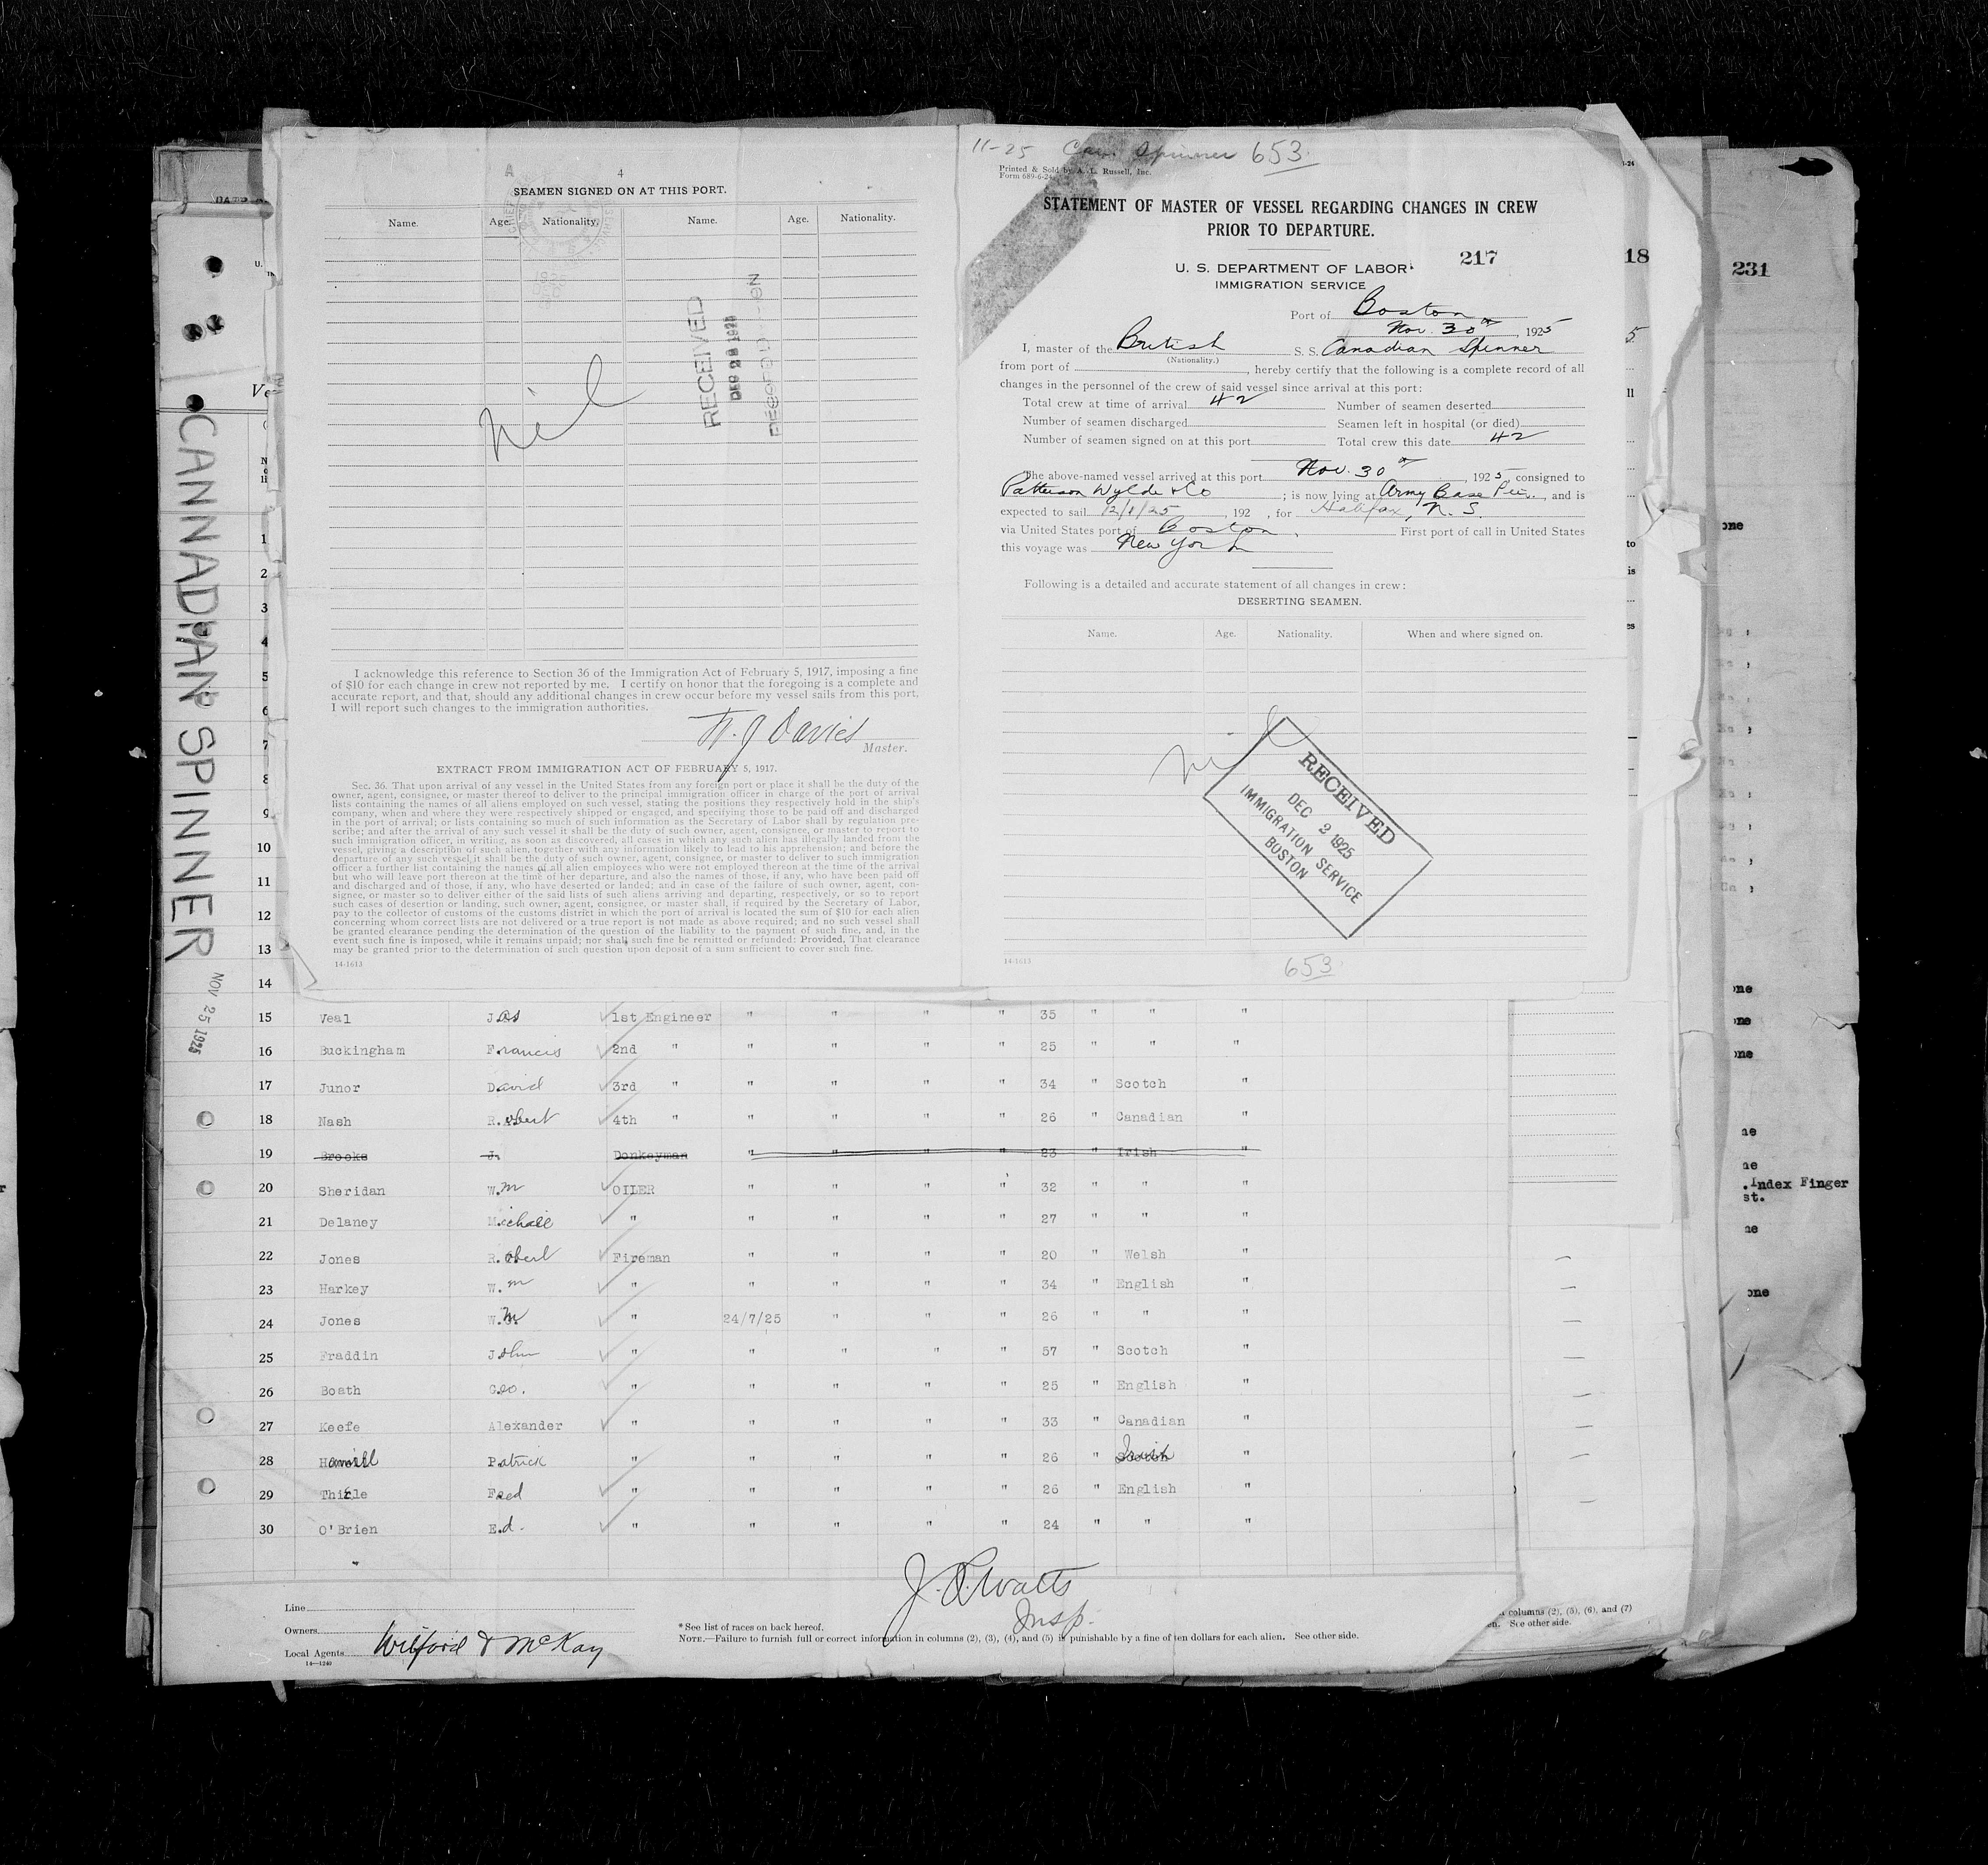 CANNADIAN SPINNER
NOV 25 1925
4
SEAMEN SIGNED ON AT THIS PORT.
Name. Age. Nationality. Name. Age. Nationality.
nil
RECEIVED
I acknowledge this reference to Section 36 of the Immigration Act of February 5, 1917, imposing a fine
of $10 for each change in crew not reported by me. I certify on honor that the foregoing is a complete and
accurate report, and that, should any additional changes in crew occur before my vessel sails from this port,
I will report such changes to the immigration authorities.
Davies
Master.
EXTRACT FROM IMMIGRATION ACT OF FEBRUARY 5, 1917.
Sec. 36. That upon arrival of any vessel in the United States from any foreign port or place it shall be the duty of the
owner, agent, consignee, or master thereof to deliver to the principal immigration officer in charge of the port of arrival
lists containing the names of all aliens employed on such vessel, stating the positions they respectively hold in the ship's
company, when and where they were respectively shipped or engaged, and specifying those to be paid off and discharged
in the port of arrival; or lists containing so much of such information as the Secretary of Labor shall by regulation pre-
scribe; and after the arrival of any such vessel it shall be the duty of such owner, agent, consignee, or master to report to
such immigration officer, in writing, as soon as discovered, all cases in which any such alien has illegally landed from the
vessel, giving a description of such alien, together with any information likely to lead to his apprehension; and before the
departure of any such vessel it shall be the duty of such owner, agent, consignee, or master to deliver to such immigration
officer a further list containing the names of all alien employees who were not employed thereon at the time of the arrival
but who will leave port thereon at the time of her departure, and also the names of those, if any, who have been paid off
and discharged and of those, if any, who have deserted or landed; and in case of the failure of such owner, agent, con-
signee, or master so to deliver either of the said lists of such aliens arriving and departing, respectively, or so to report
such cases of desertion or landing, such owner, agent, consignee, or master shall, if required by the Secretary of Labor,
pay to the collector of customs of the customs district in which the port of arrival is located the sum of $10 for each alien
concerning whom correct lists are not delivered or a true report is not made as above required; and no such vessel shall
be granted clearance pending the determination of the question of the liability to the payment of such fine, and, in the
event such fine is imposed, while it remains unpaid; nor shall such fine be remitted or refunded: Provided, That clearance
may be granted prior to the determination of such question upon deposit of a sum sufficient to cover such fine.
14-1613
11-25 Can. Spinner 653
Printed & Sold by A. L. Russell, Inc.
Form 689-6-24
STATEMENT OF MASTER OF VESSEL REGARDING CHANGES IN CREW
PRIOR TO DEPARTURE.
217
U. S. DEPARTMENT OF LABOR
IMMIGRATION SERVICE
Port of Boston
Nov. 30th, 1925
I, master of the British S. S. Canadian Spinner
(Nationality.)
from port of , hereby certify that the following is a complete record of all
changes in the personnel of the crew of said vessel since arrival at this port:
Total crew at time of arrival 42 Number of seamen deserted
Number of seamen discharged Seamen left in hospital (or died)
Number of seamen signed on at this port Total crew this date 42
The above-named vessel arrived at this port Nov. 30th, 1925, consigned to
Patterson Wylde & Co ; is now lying at Army Base Pier, and is
expected to sail 12/1/25, 192 , for Halifax, N. S.
via United States port of Boston. First port of call in United States
this voyage was New York
Following is a detailed and accurate statement of all changes in crew:
DESERTING SEAMEN.
Name. Age. Nationality. When and where signed on.
nil
RECEIVED
DEC 2 1925
IMMIGRATION SERVICE
BOSTON
14-1613
653
18
231
1
2
3
4
5
6
7
8
9
10
11
12
13
14
15 Veal Jas 1st Engineer " " " " 35 " " "
16 Buckingham Francis 2nd " " " " " 25 " " "
17 Junor David 3rd " " " " " 34 " Scotch "
18 Nash Robert 4th " " " " " 26 " Canadian "
19 Brooks J. Donkeyman " " " " 23 " Irish "
20 Sheridan Wm OILER " " " " 32 " " "
21 Delaney Michael " " " " " 27 " " "
22 Jones Robert Fireman " " " " 20 " Welsh "
23 Harkey W.m " " " " " 34 " English "
24 Jones W.m " 24/7/25 " " " 26 " " "
25 Fraddin John " " " " " 57 " Scotch "
26 Boath Geo. " " " " " 25 " English "
27 Keefe Alexander " " " " " 33 " Canadian "
28 Hamill Patrick " " " " " 26 " Irish "
29 Thirle Fred " " " " " 26 " English "
30 O'Brien Ed. " " " " " 24 " " "
Index Finger
Watts
Insp.
Line
Owners
Local Agents Wilford & McKay
14-1240
*See list of races on back hereof.
NOTE.—Failure to furnish full or correct information in columns (2), (3), (4), and (5) is punishable by a fine of ten dollars for each alien. See other side.
columns (2), (5), (6), and (7)
See other side.